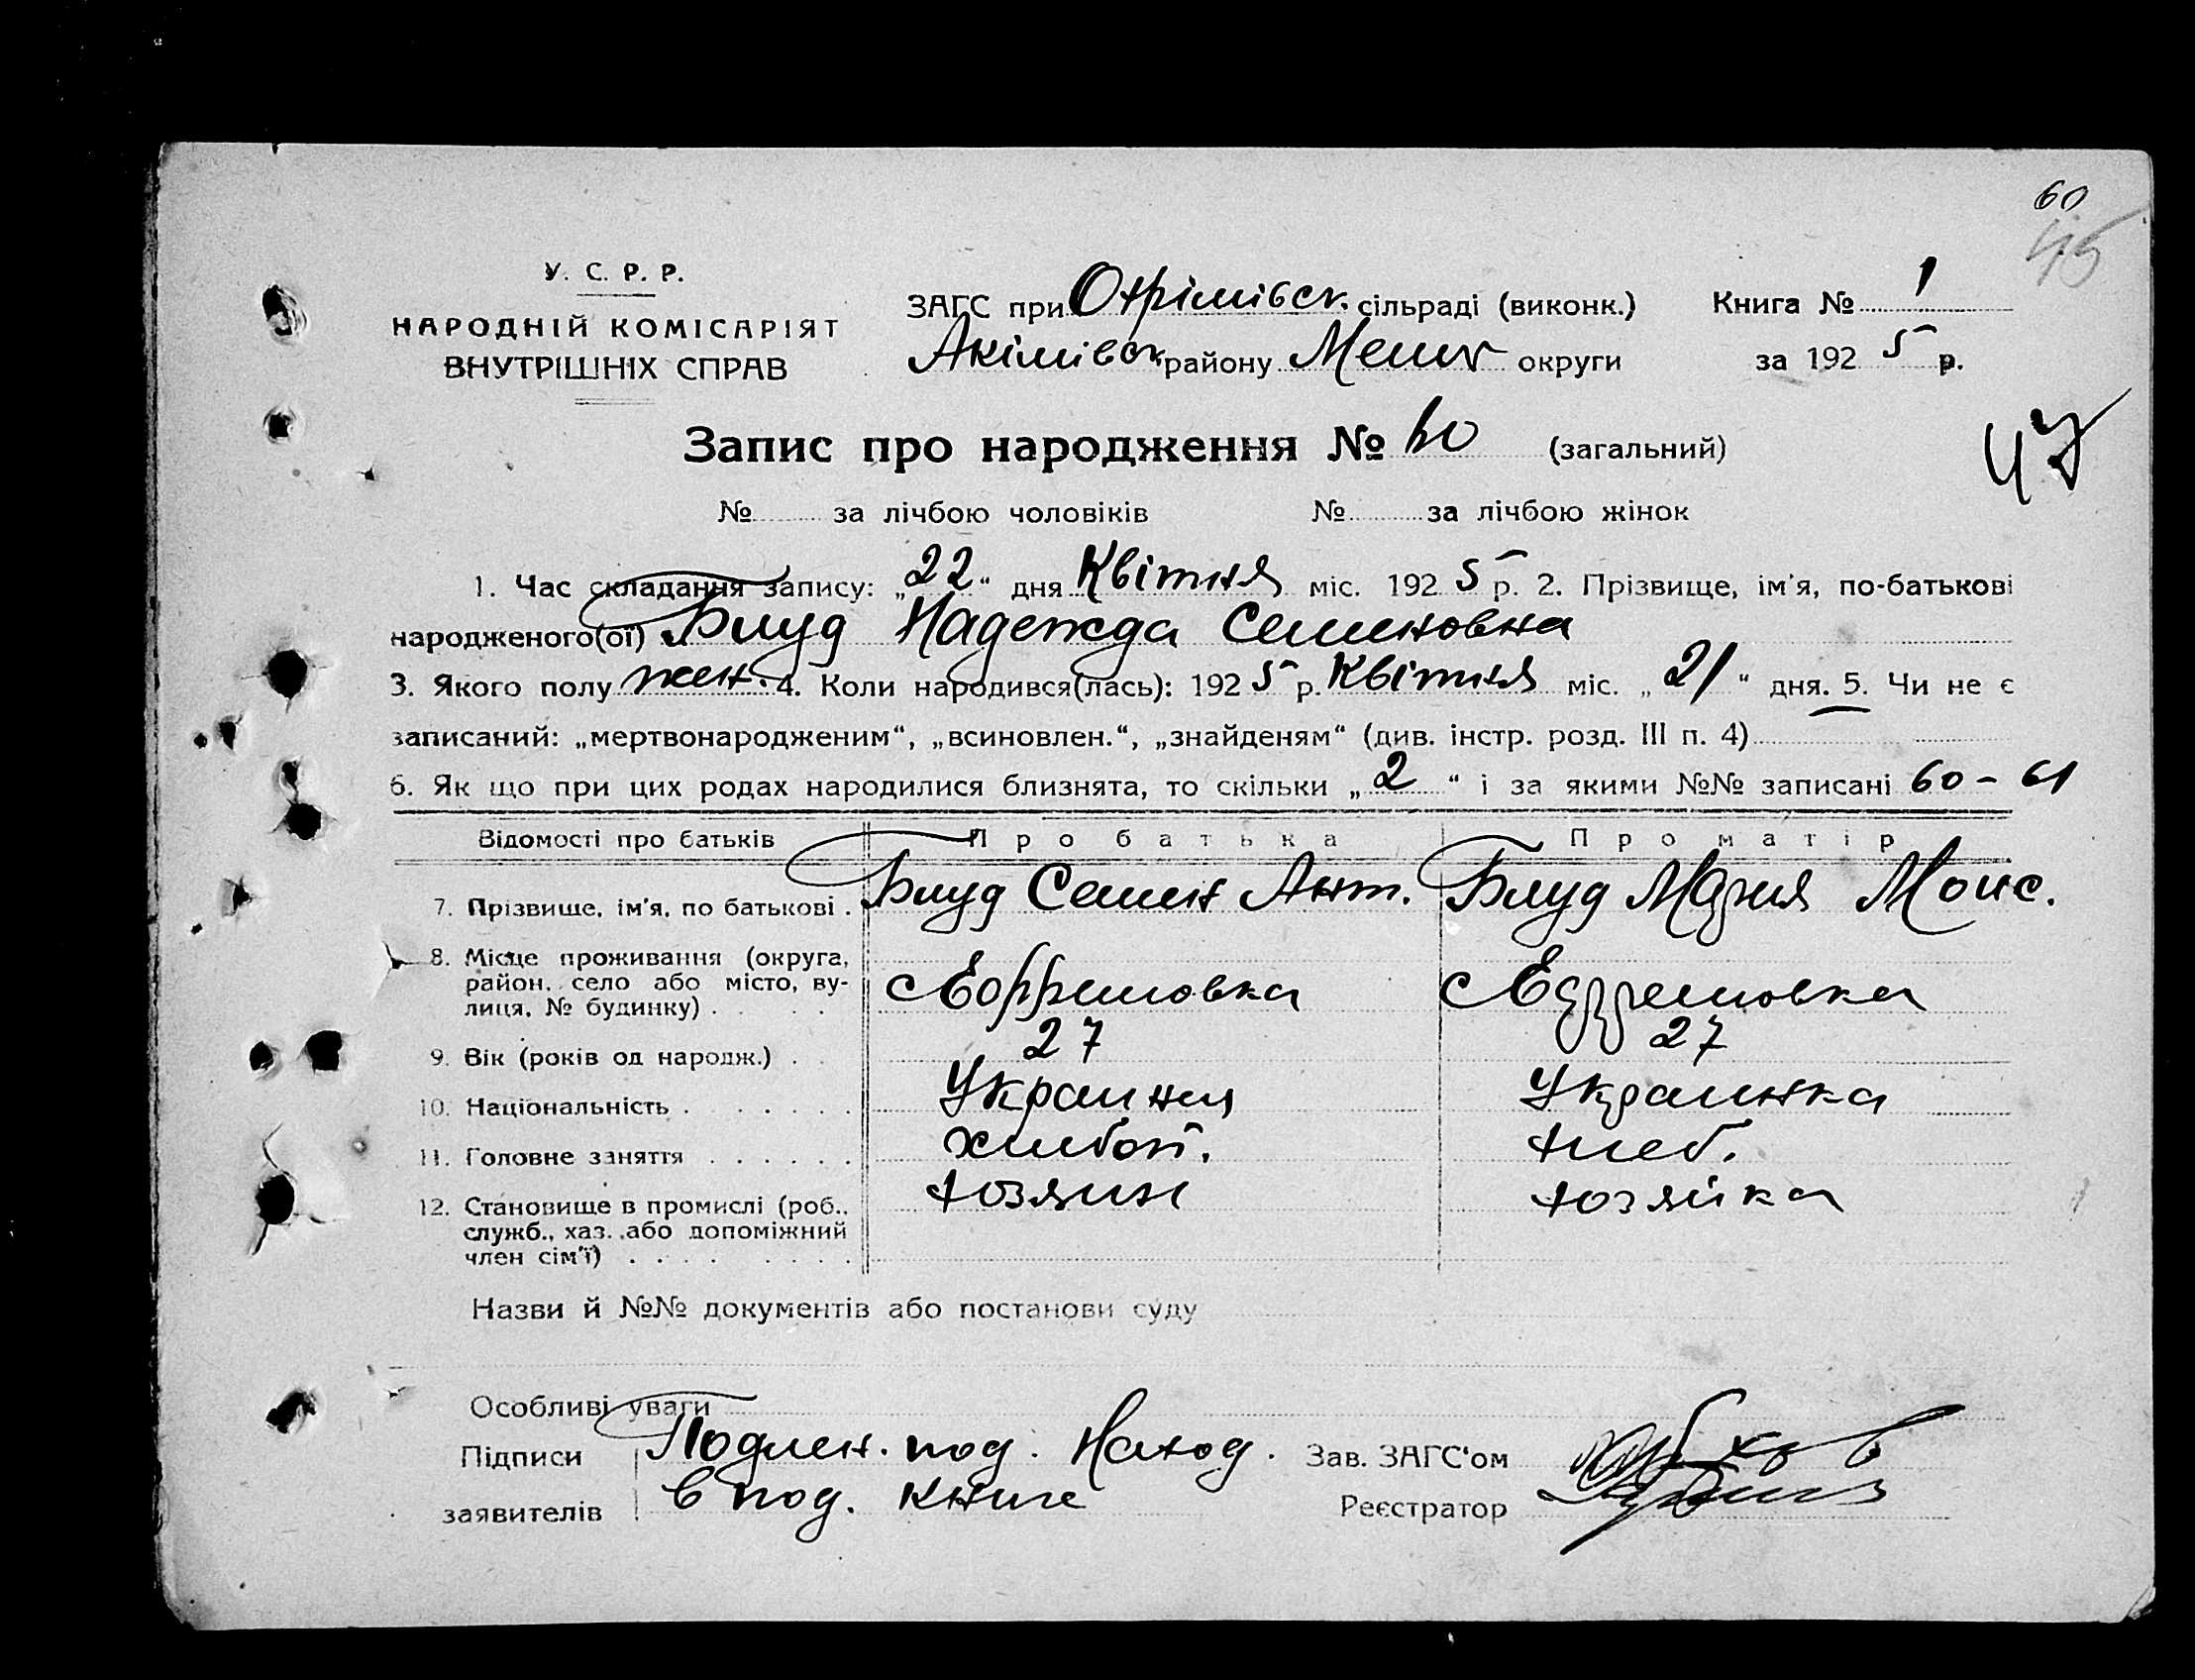 60
45
У. С. Р. Р.
НАРОДНІЙ КОМІСАРІЯТ
ВНУТРІШНІХ СПРАВ
ЗАГС при Охрімівск. сільраді (виконк.) Книга № 1
Акімівск району Меліт округи за 1925 р.
Запис про народження № 60 (загальний)
47
№ за лічбою чоловіків № за лічбою жінок
1. Час складання запису: „22“ дня Квітня міс. 1925 р. 2. Прізвище, ім'я, по-батькові
народженого(ої) Блуд Надежда Семеновна
3. Якого полу жен. 4. Коли народився(лась): 1925 р. Квітня міс. „21“ дня. 5. Чи не є
записаний: „мертвонародженим“, „всиновлен.“, „знайденям“ (див. інстр. розд. III п. 4)
6. Як що при цих родах народилися близнята, то скільки „2“ і за якими №№ записані 60 – 61
Відомості про батьків Про батька Про матір
7. Прізвище, ім'я, по батькові . Блуд Семен Ант. Блуд Мария Моис.
8. Місце проживання (округа,
район, село або місто, ву-
лиця, № будинку) . с Ефремовка с Ефремовка
9. Вік (років од народж.) . 27 27
10. Національність . Украинец Украинка
11. Головне заняття . хлебоп. хлеб.
12. Становище в промислі (роб.,
служб., хаз. або допоміжний
член сім'ї) . хозяин хозяйка
Назви й №№ документів або постанови суду
Особливі уваги
Підписи Подлен. под. Наход. Зав. ЗАГС'ом
заявителів в под. книге Реєстратор